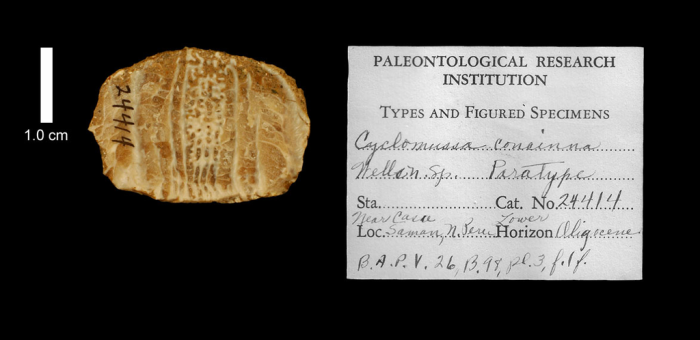 24414
1.0 cm
PALEONTOLOGICAL RESEARCH
INSTITUTION
TYPES AND FIGURED SPECIMENS
Cyclomussa concinna
Wells n. sp. Paratype
Sta. Cat. No. 24414
Near Casa Lower
Loc. Saman, N. Peru Horizon Oligocene
B.A.P. V. 26, B. 98, pl. 3, f. 1 f.